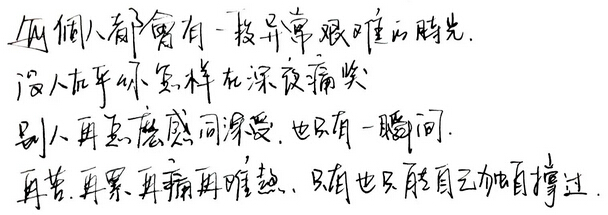 每個人都會有一段异常艰难的時光.
沒人在乎你怎样在深夜痛哭
别人再怎麽感同深受.也只有一瞬间.
再苦.再累.再痛再难熬.只有也只能自己独自撐过.